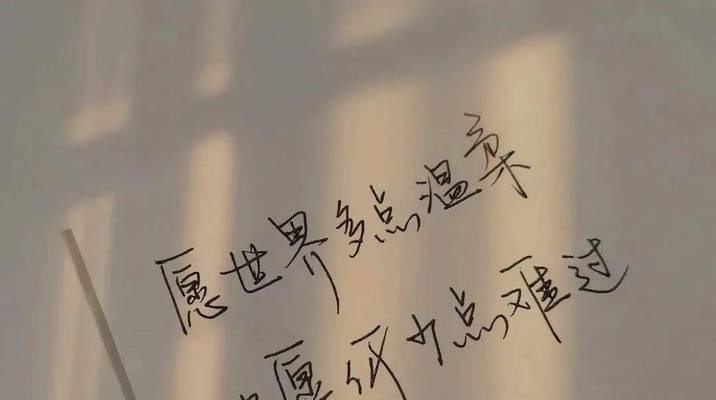 愿世界多点温柔
愿少点难过